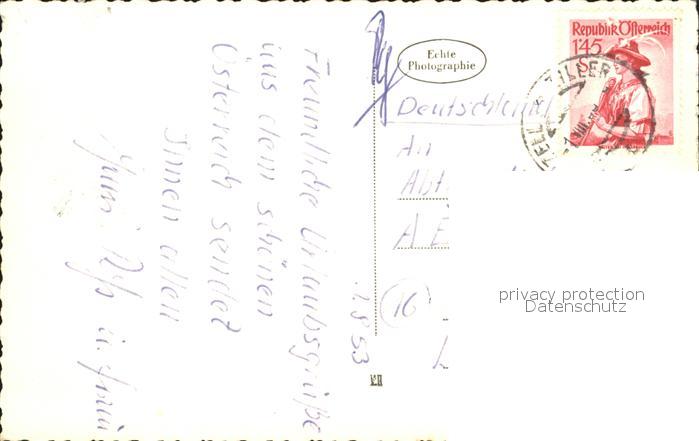 Freundliche Urlaubsgrüße
aus dem schönen
Österreich sendet
Ihnen allen
u.
1.8.53
Echte
Photographie
Republik Österreich
1'45
S
ZELL ZILLER
Deutschland
An
Abt.
A E
16
privacy protection
Datenschutz